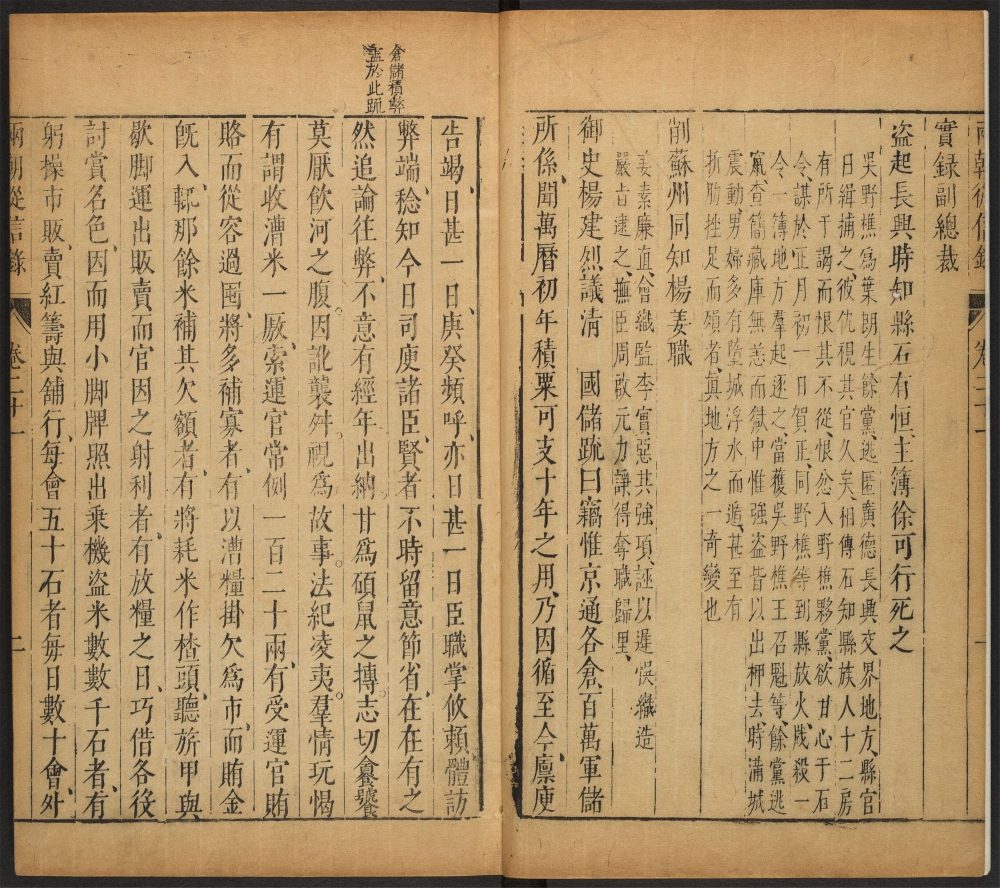 兩朝從信錄 卷二十一 一
實録副總裁
盗起長興時知縣石有恒主簿徐可行死之
吳野樵爲葉朗生餘黨逃匿廣德長興交界地方縣官
日緝捕之彼仇視其官久矣相傳石知縣族人十二房
有所干謁而恨其不從恨忿入野樵夥黨欲甘心于石
令謀於正月初一日賀正同野樵等到縣放火戕殺一
令一簿地方羣起逐之當獲吳野樵王召魁等餘黨逃
竄查簡藏庫無恙而獄中惟強盗皆以出柙去時滿城
震動男婦多有墮城浮水而遁甚至有
折肋挫足而殞者眞地方之一奇變也
削蘇州同知楊姜職
姜素廉直會織監李實惡其強項誣以遲悞織造
嚴旨逮之撫臣周啟元力諫得奪職歸里
御史楊建烈議清 國儲疏曰竊惟京通各倉百萬軍儲
所係聞萬曆初年積粟可支十年之用乃因循至今廪庾
倉儲積弊
盡於此疏
告竭日甚一日庚癸頻呼亦日甚一日臣職掌攸賴體訪
弊端稔知今日司庾諸臣賢者不時留意節省在在有之
然追論往弊不意有經年出納甘爲碩鼠之摶志切饕餮
莫厭飲河之腹因訛襲舛視爲故事法紀凌夷羣情玩愒
有謂收漕米一厫索運官常例一百二十兩有受運官賄
賂而從容過囤將多補寡者有以漕糧掛欠爲市而賄金
旣入輙那餘米補其欠額者有將耗米作楂頭聽旂甲與
歇脚運出販賣而官因之射利者有放糧之日巧借各役
討賞名色因而用小脚牌照出乘機盗米數數千石者有
躬操市販賣紅籌與舖行每會五十石者每日數十會外
兩朝從信錄 卷二十一 二